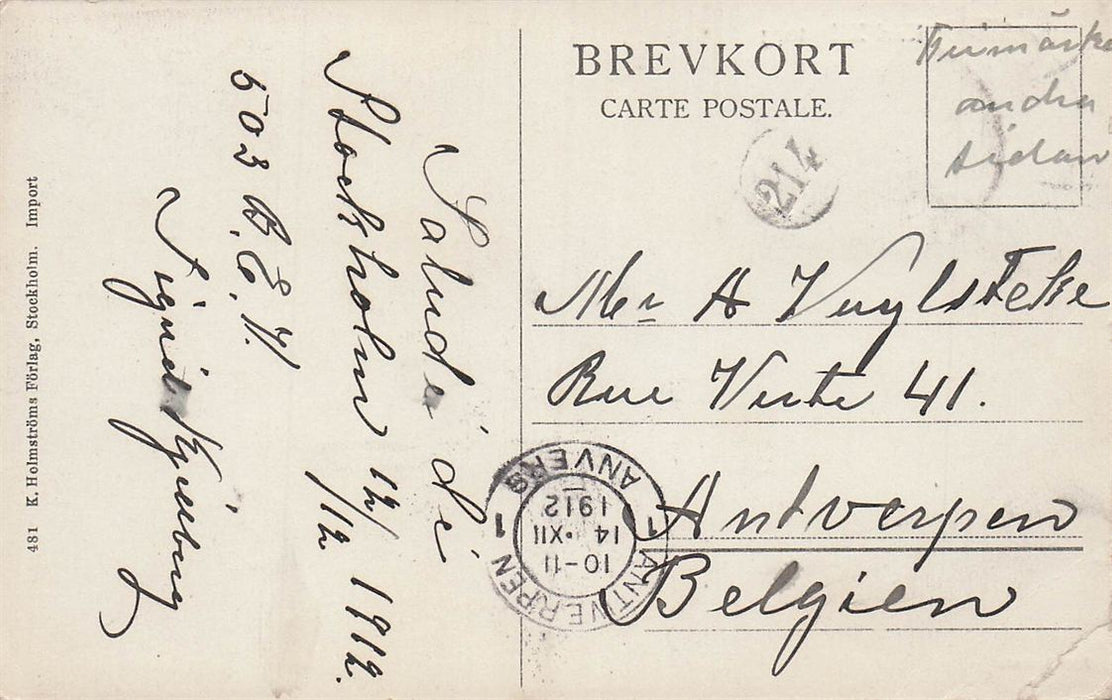 BREVKORT
CARTE POSTALE.
Frimärke
andra
sidan
214
Mr A Vuylsteke
Rue Verte 41.
Antverpen
Belgien
Salude dé
Stockholm 12/12 1912.
503 B.E.V.
Sigrid Kjellberg
1 ANTWERPEN 1 ANVERS
10-11
14 • XII
1912
481 K. Holmströms Förlag, Stockholm. Import